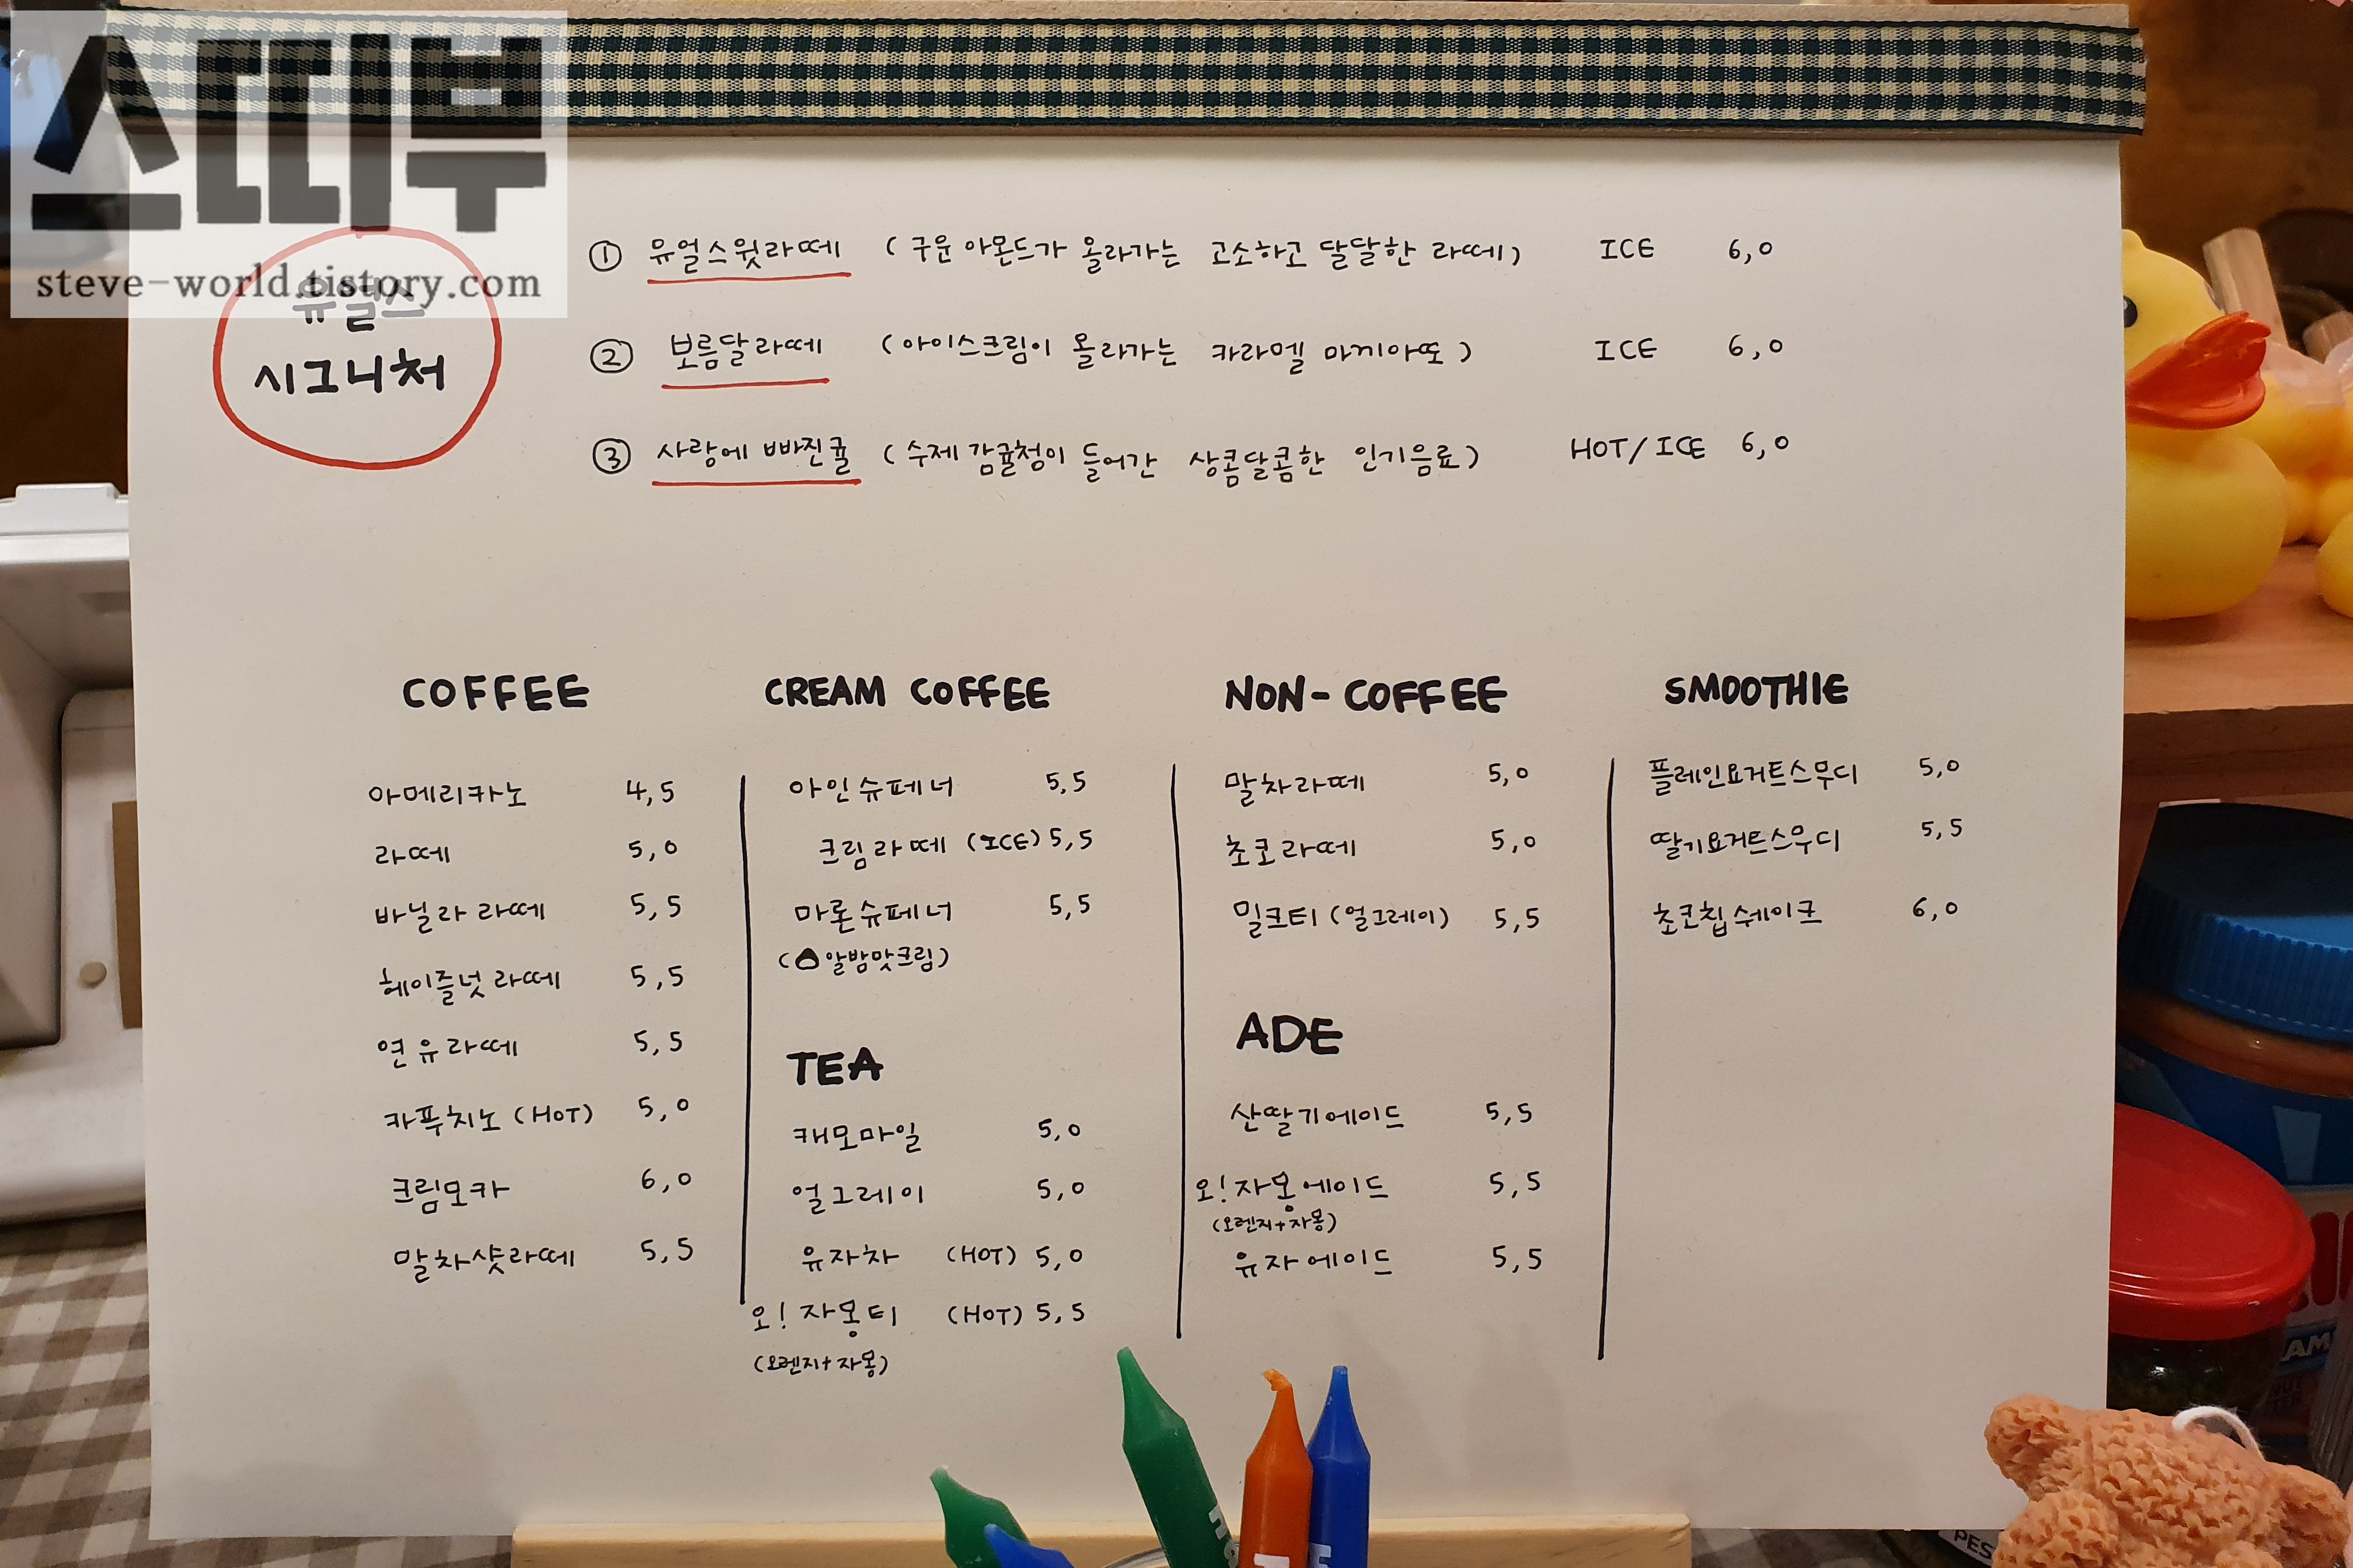 스띠부
steve-world.tistory.com
유얼스
시그니처
① 유얼스윗라떼 (구운 아몬드가 올라가는 고소하고 달달한 라떼) ICE 6,0
② 보름달라떼 (아이스크림이 올라가는 카라멜 마끼아또) ICE 6,0
③ 사랑에 빠진귤 (수제 감귤청이 들어간 상콤달콤한 인기음료) HOT/ICE 6,0
COFFEE
아메리카노 4,5
라떼 5,0
바닐라 라떼 5,5
헤이즐넛 라떼 5,5
연유라떼 5,5
카푸치노 (HOT) 5,0
크림모카 6,0
말차샷라떼 5,5
CREAM COFFEE
아인슈페너 5,5
크림라떼 (ICE) 5,5
마론슈페너 5,5
(알밤맛크림)
TEA
캐모마일 5,0
얼그레이 5,0
유자차 (HOT) 5,0
오! 자몽티 (HOT) 5,5
(오렌지+자몽)
NON-COFFEE
말차라떼 5,0
초코라떼 5,0
밀크티 (얼그레이) 5,5
ADE
산딸기에이드 5,5
오! 자몽에이드 5,5
(오렌지+자몽)
유자에이드 5,5
SMOOTHIE
플레인요거트스무디 5,0
딸기요거트스무디 5,5
초코칩쉐이크 6,0